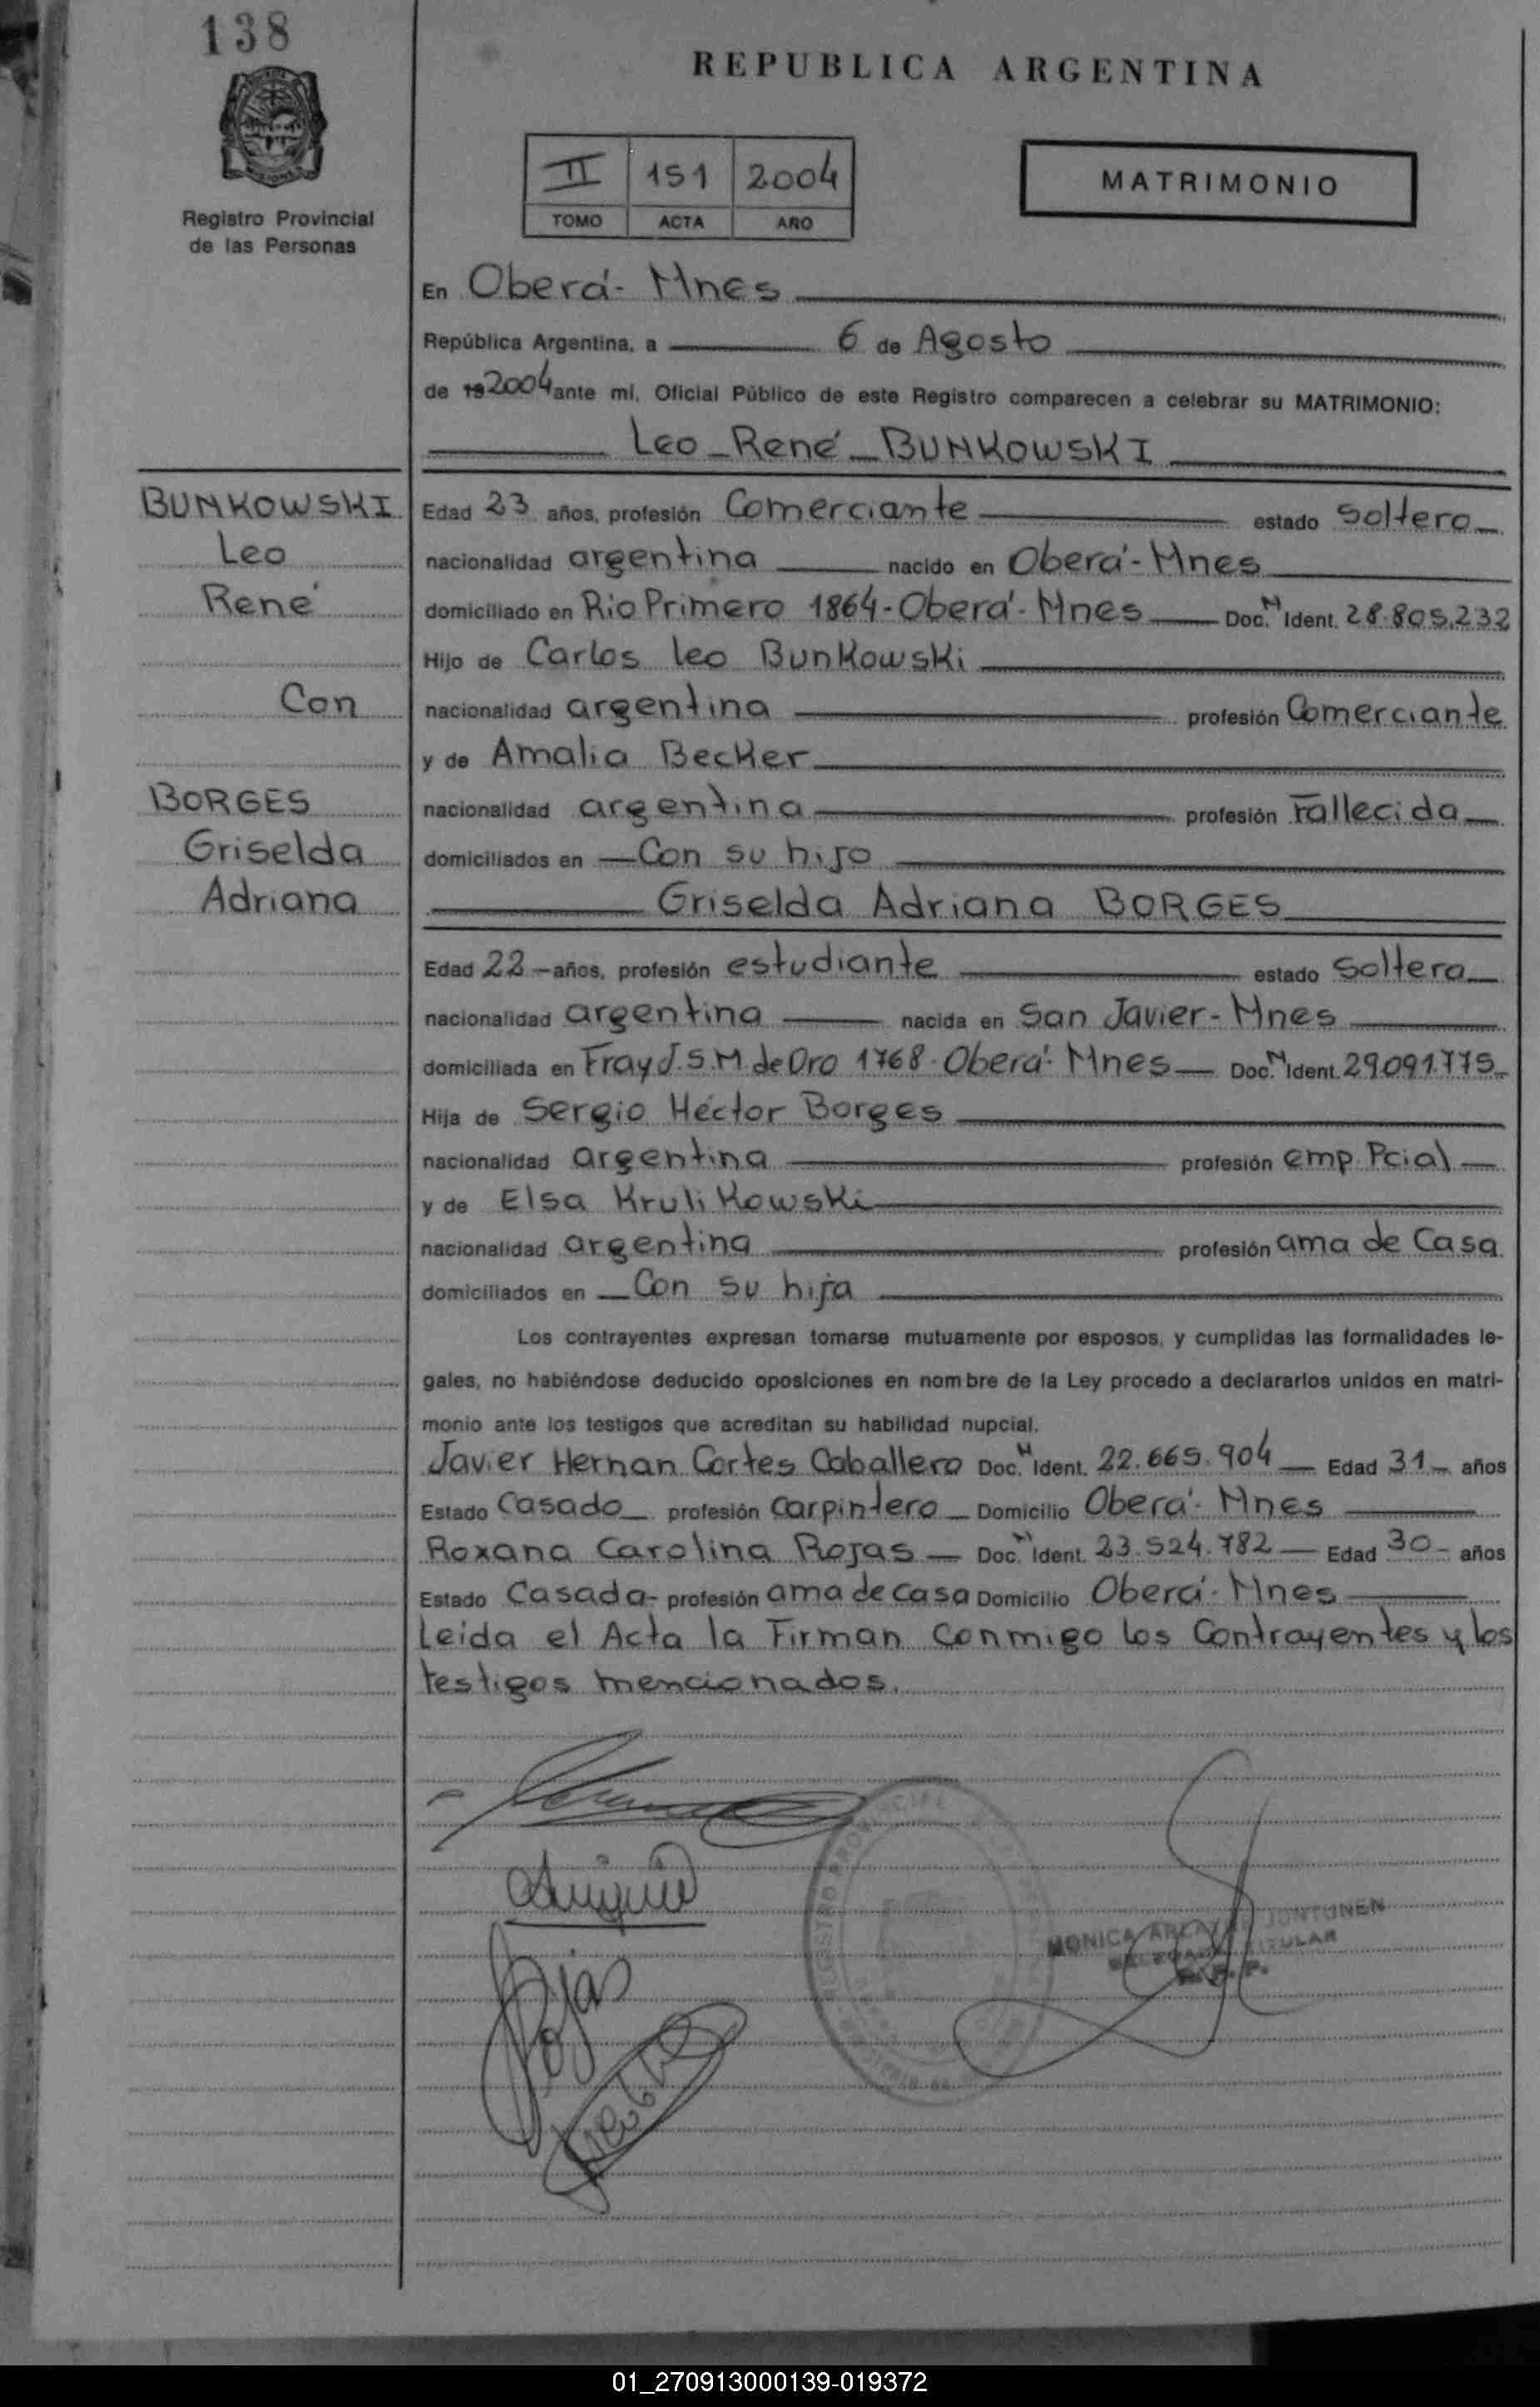 138
REPUBLICA ARGENTINA
II 151 2004
TOMO ACTA AÑO
MATRIMONIO
Registro Provincial
de las Personas
En Oberá - Mnes
República Argentina, a 6 de Agosto
de 19 2004 ante mi, Oficial Público de este Registro comparecen a celebrar su MATRIMONIO:
Leo René BUNKOWSKI
BUNKOWSKI
Leo
René
Con
BORGES
Griselda
Adriana
Edad 23 años, profesión Comerciante estado Soltero
nacionalidad argentina nacido en Oberá - Mnes
domiciliado en Rio Primero 1864 - Oberá - Mnes Doc. N Ident. 28.805.232
Hijo de Carlos Leo Bunkowski
nacionalidad argentina profesión Comerciante
y de Amalia Becker
nacionalidad argentina profesión Fallecida
domiciliados en Con su hijo
Griselda Adriana BORGES
Edad 22 - años, profesión estudiante estado Soltera
nacionalidad argentina nacida en San Javier - Mnes
domiciliada en Fray J. S. M. de Oro 1768 - Oberá - Mnes Doc. N Ident. 29.091.775
Hija de Sergio Héctor Borges
nacionalidad argentina profesión emp. Pcial
y de Elsa Krulikowski
nacionalidad argentina profesión ama de Casa
domiciliados en Con su hija
Los contrayentes expresan tomarse mutuamente por esposos, y cumplidas las formalidades le-
gales, no habiéndose deducido oposiciones en nombre de la Ley procedo a declararlos unidos en matri-
monio ante los testigos que acreditan su habilidad nupcial.
Javier Hernan Cortes Caballero Doc. N Ident. 22.665.904 Edad 31 - años
Estado Casado profesión Carpintero Domicilio Oberá - Mnes
Roxana Carolina Rojas Doc. N Ident. 23.524.782 Edad 30 - años
Estado Casada - profesión ama de casa Domicilio Oberá - Mnes
Leida el Acta la Firman Conmigo los Contrayentes y los
testigos mencionados.
Rojas
MONICA JUNTUNEN
TITULAR
01_270913000139-019372